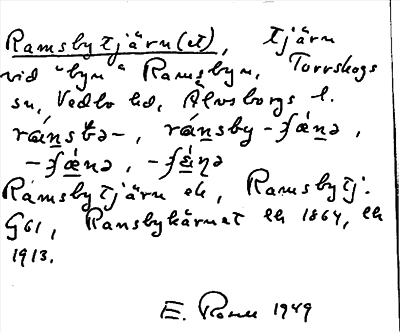 Ramsbytjärn(et), tjärn
vid "byn" Ramsbyn, Torrskogs
sn, Vedbo hd, Älvsborgs l.
-ʃǽnə, -ʃǽŋə
Ramsbytjärn ek, Ramsbytj.
G61, Ransbykärnet ek 1864, ek
1913.
E. Rosell 1949